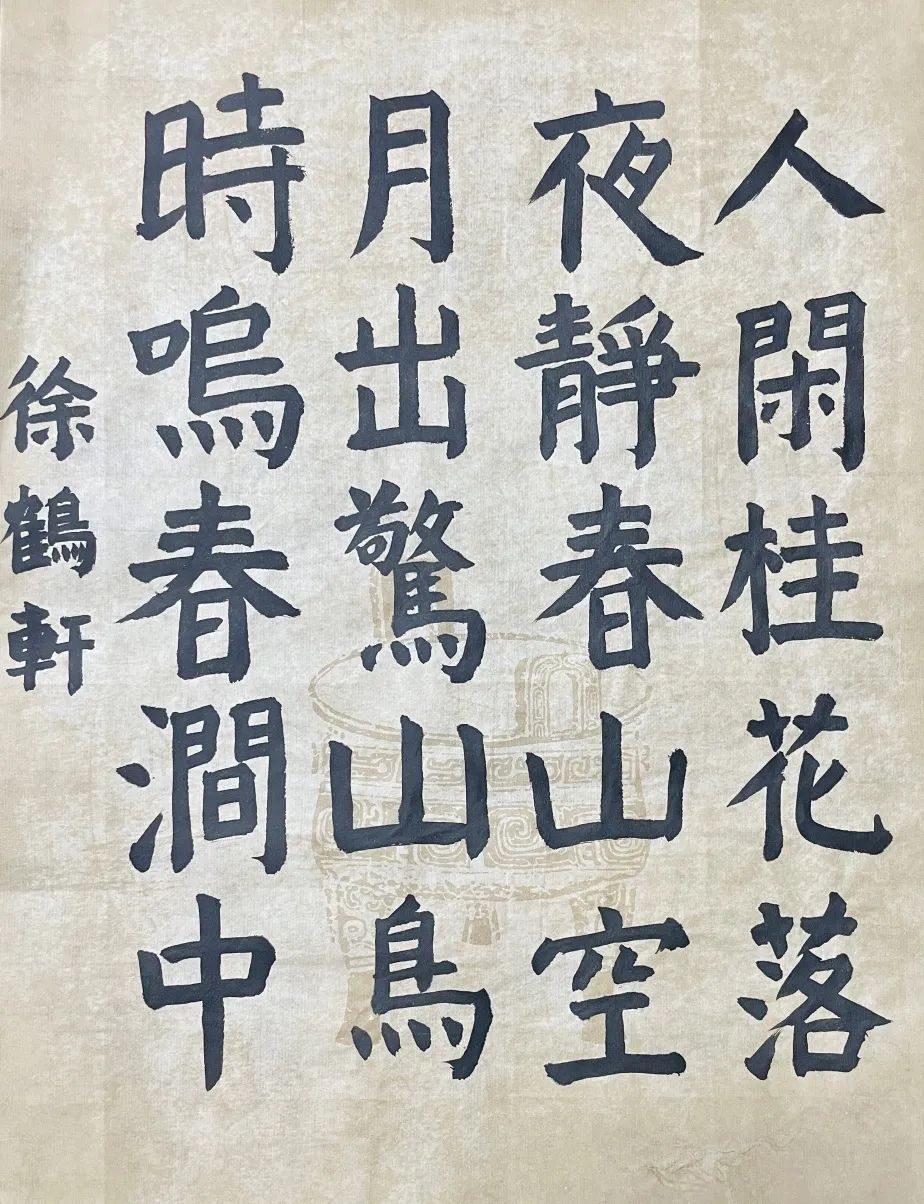 人閑桂花落
夜靜春山空
月出驚山鳥
時嗚春澗中
徐鶴軒